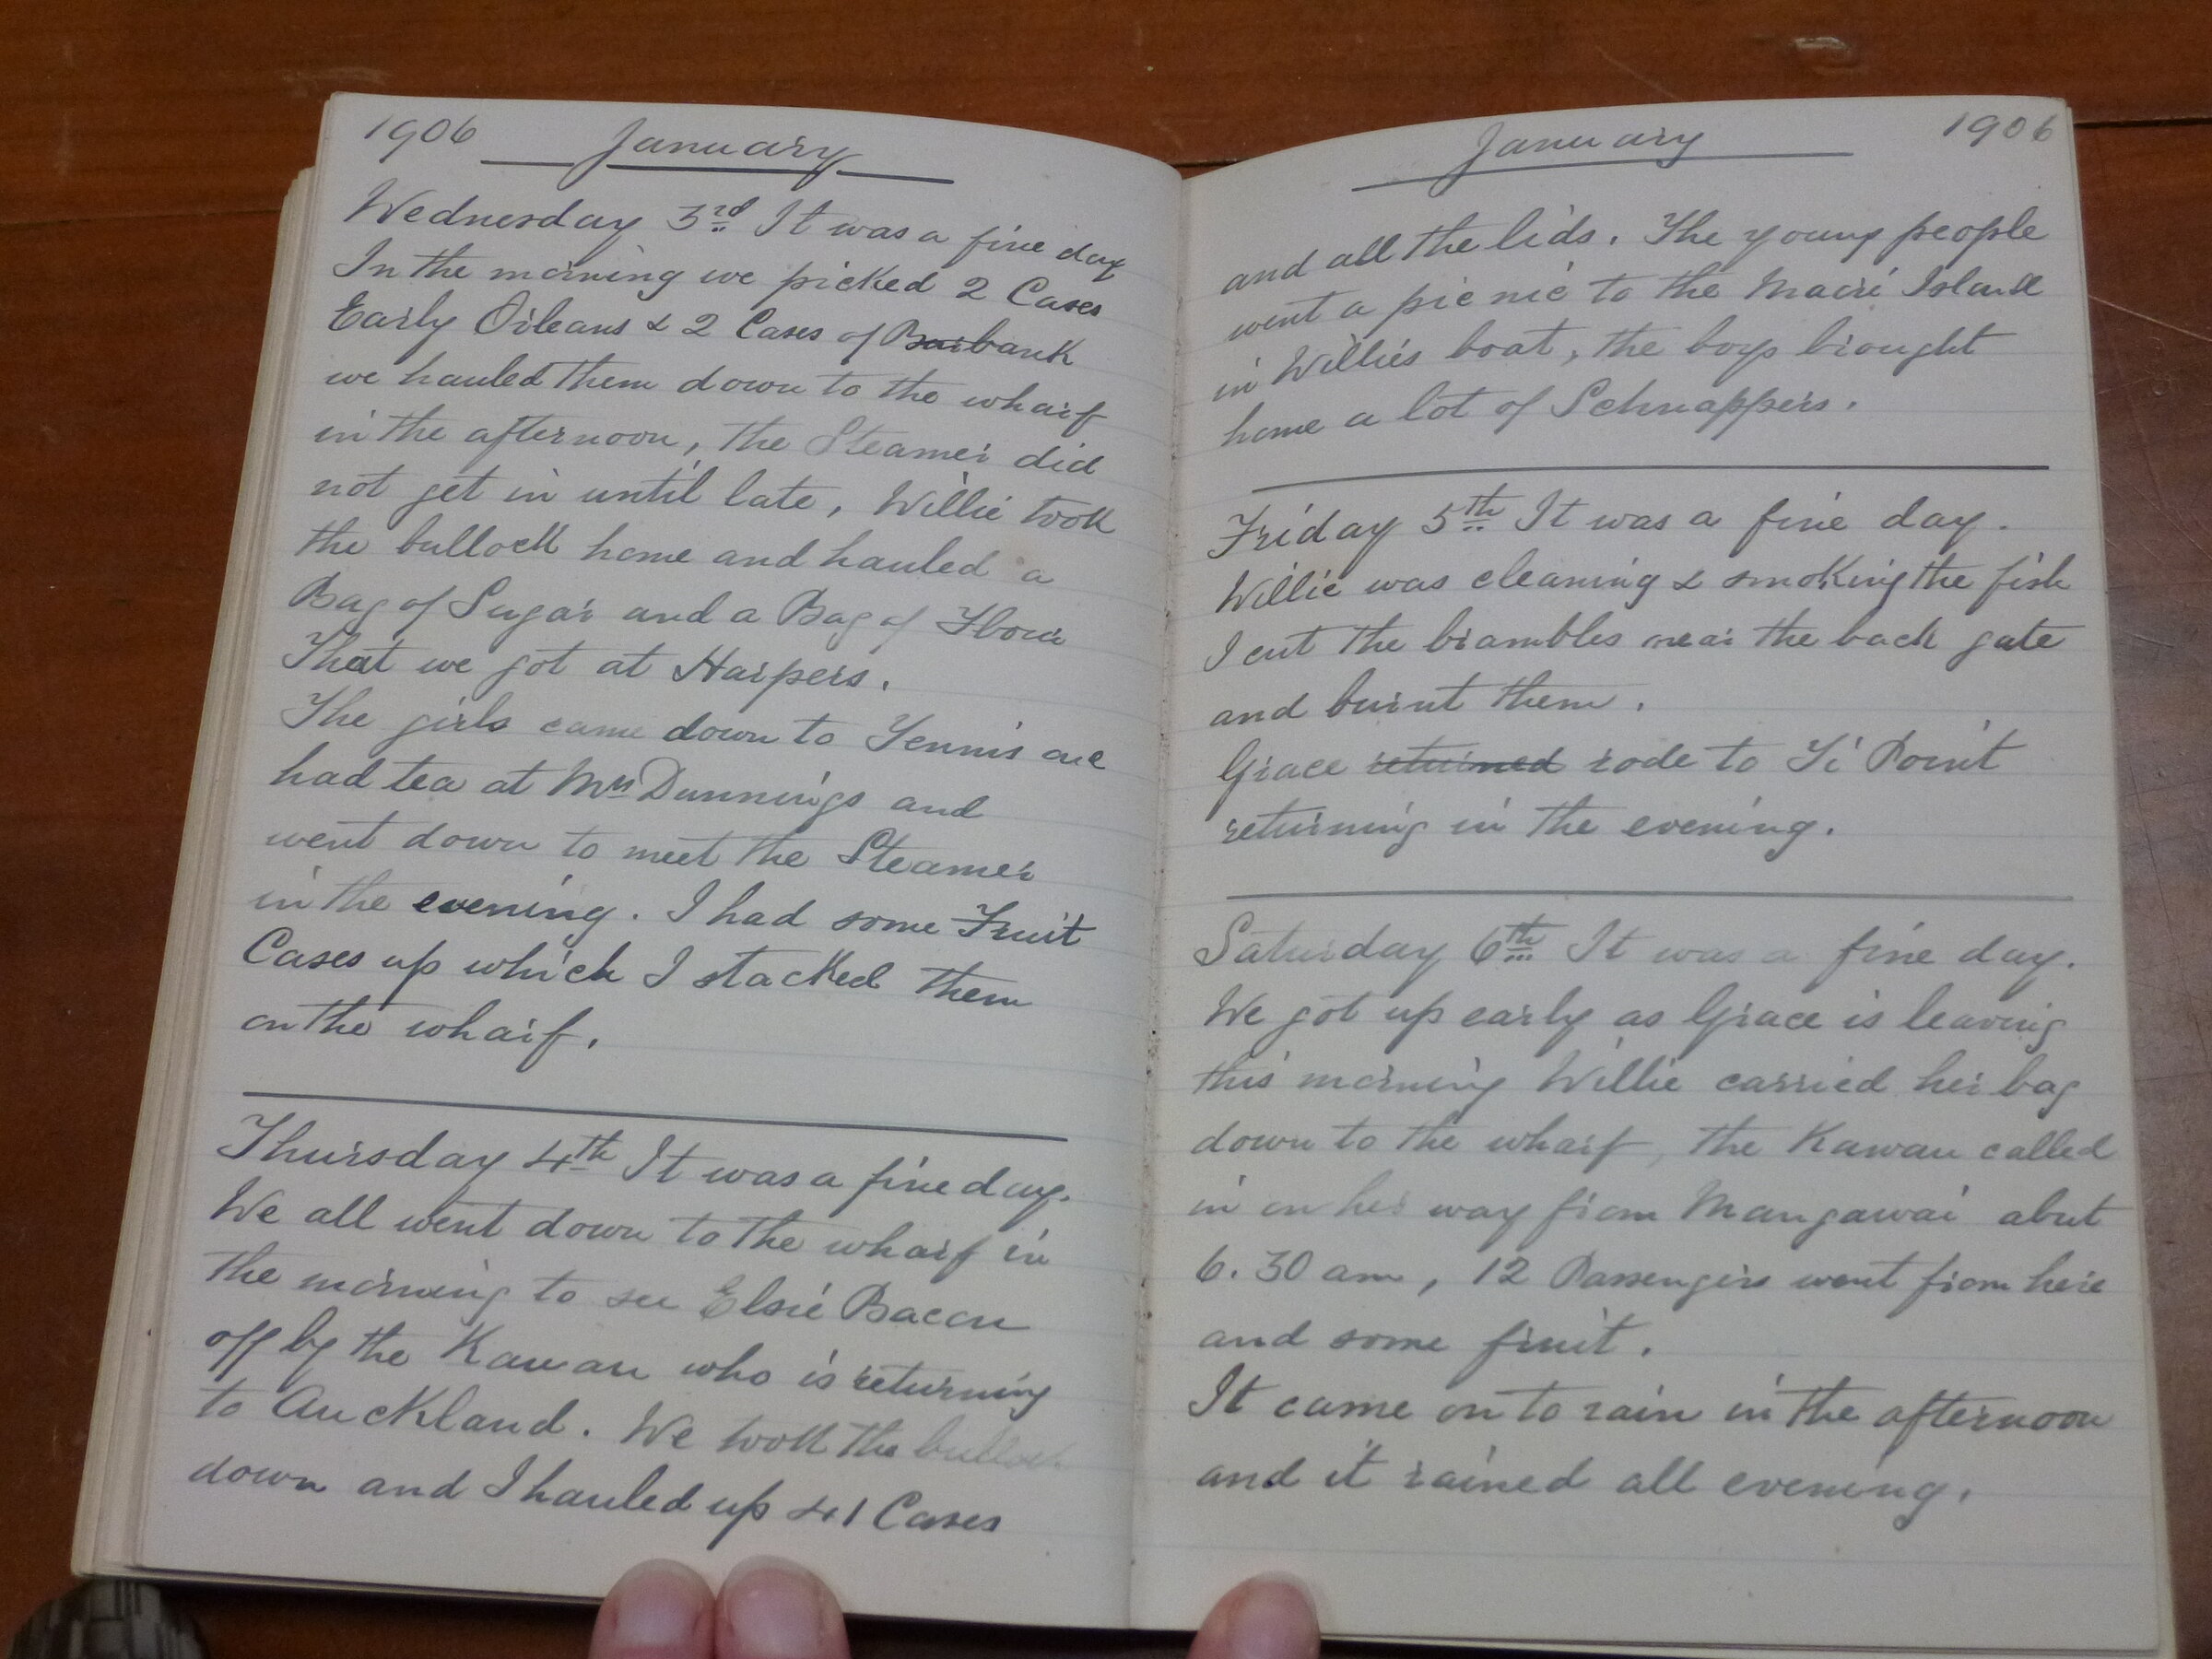 1906 January
Wednesday 3rd It was a fine day
In the morning we picked 2 Cases
Early Orleans & 2 Cases of Burbank
we hauled them down to the wharf
in the afternoon, the Steamer did
not get in until late, Willie took
the bullock home and hauled a
Bag of Sugar and a Bag of Flour
That we got at Harpers.
The girls came down to Tennis and
had tea at Mrs Dunnings and
went down to meet the Steamer
in the evening. I had some Fruit
Cases up which I stacked them
on the wharf.
Thursday 4th It was a fine day.
We all went down to the wharf in
the morning to see Elsie Bacon
off by the Kawau who is returning
to Auckland. We took the bullock
down and I hauled up 41 Cases
January 1906
and all the lids. The young people
went a pic nic to the Maori Island
in Willie's boat, the boys brought
home a lot of Schnappers.
Friday 5th It was a fine day.
Willie was cleaning & smoking the fish
I cut the brambles near the back gate
and burnt them.
Grace returned rode to Ti Point
returning in the evening.
Saturday 6th It was a fine day.
We got up early as Grace is leaving
this morning Willie carried her bag
down to the wharf, the Kawau called
in on her way from Mangawai abut
6.30 am, 12 Passengers went from here
and some fruit.
It came on to rain in the afternoon
and it rained all evening.